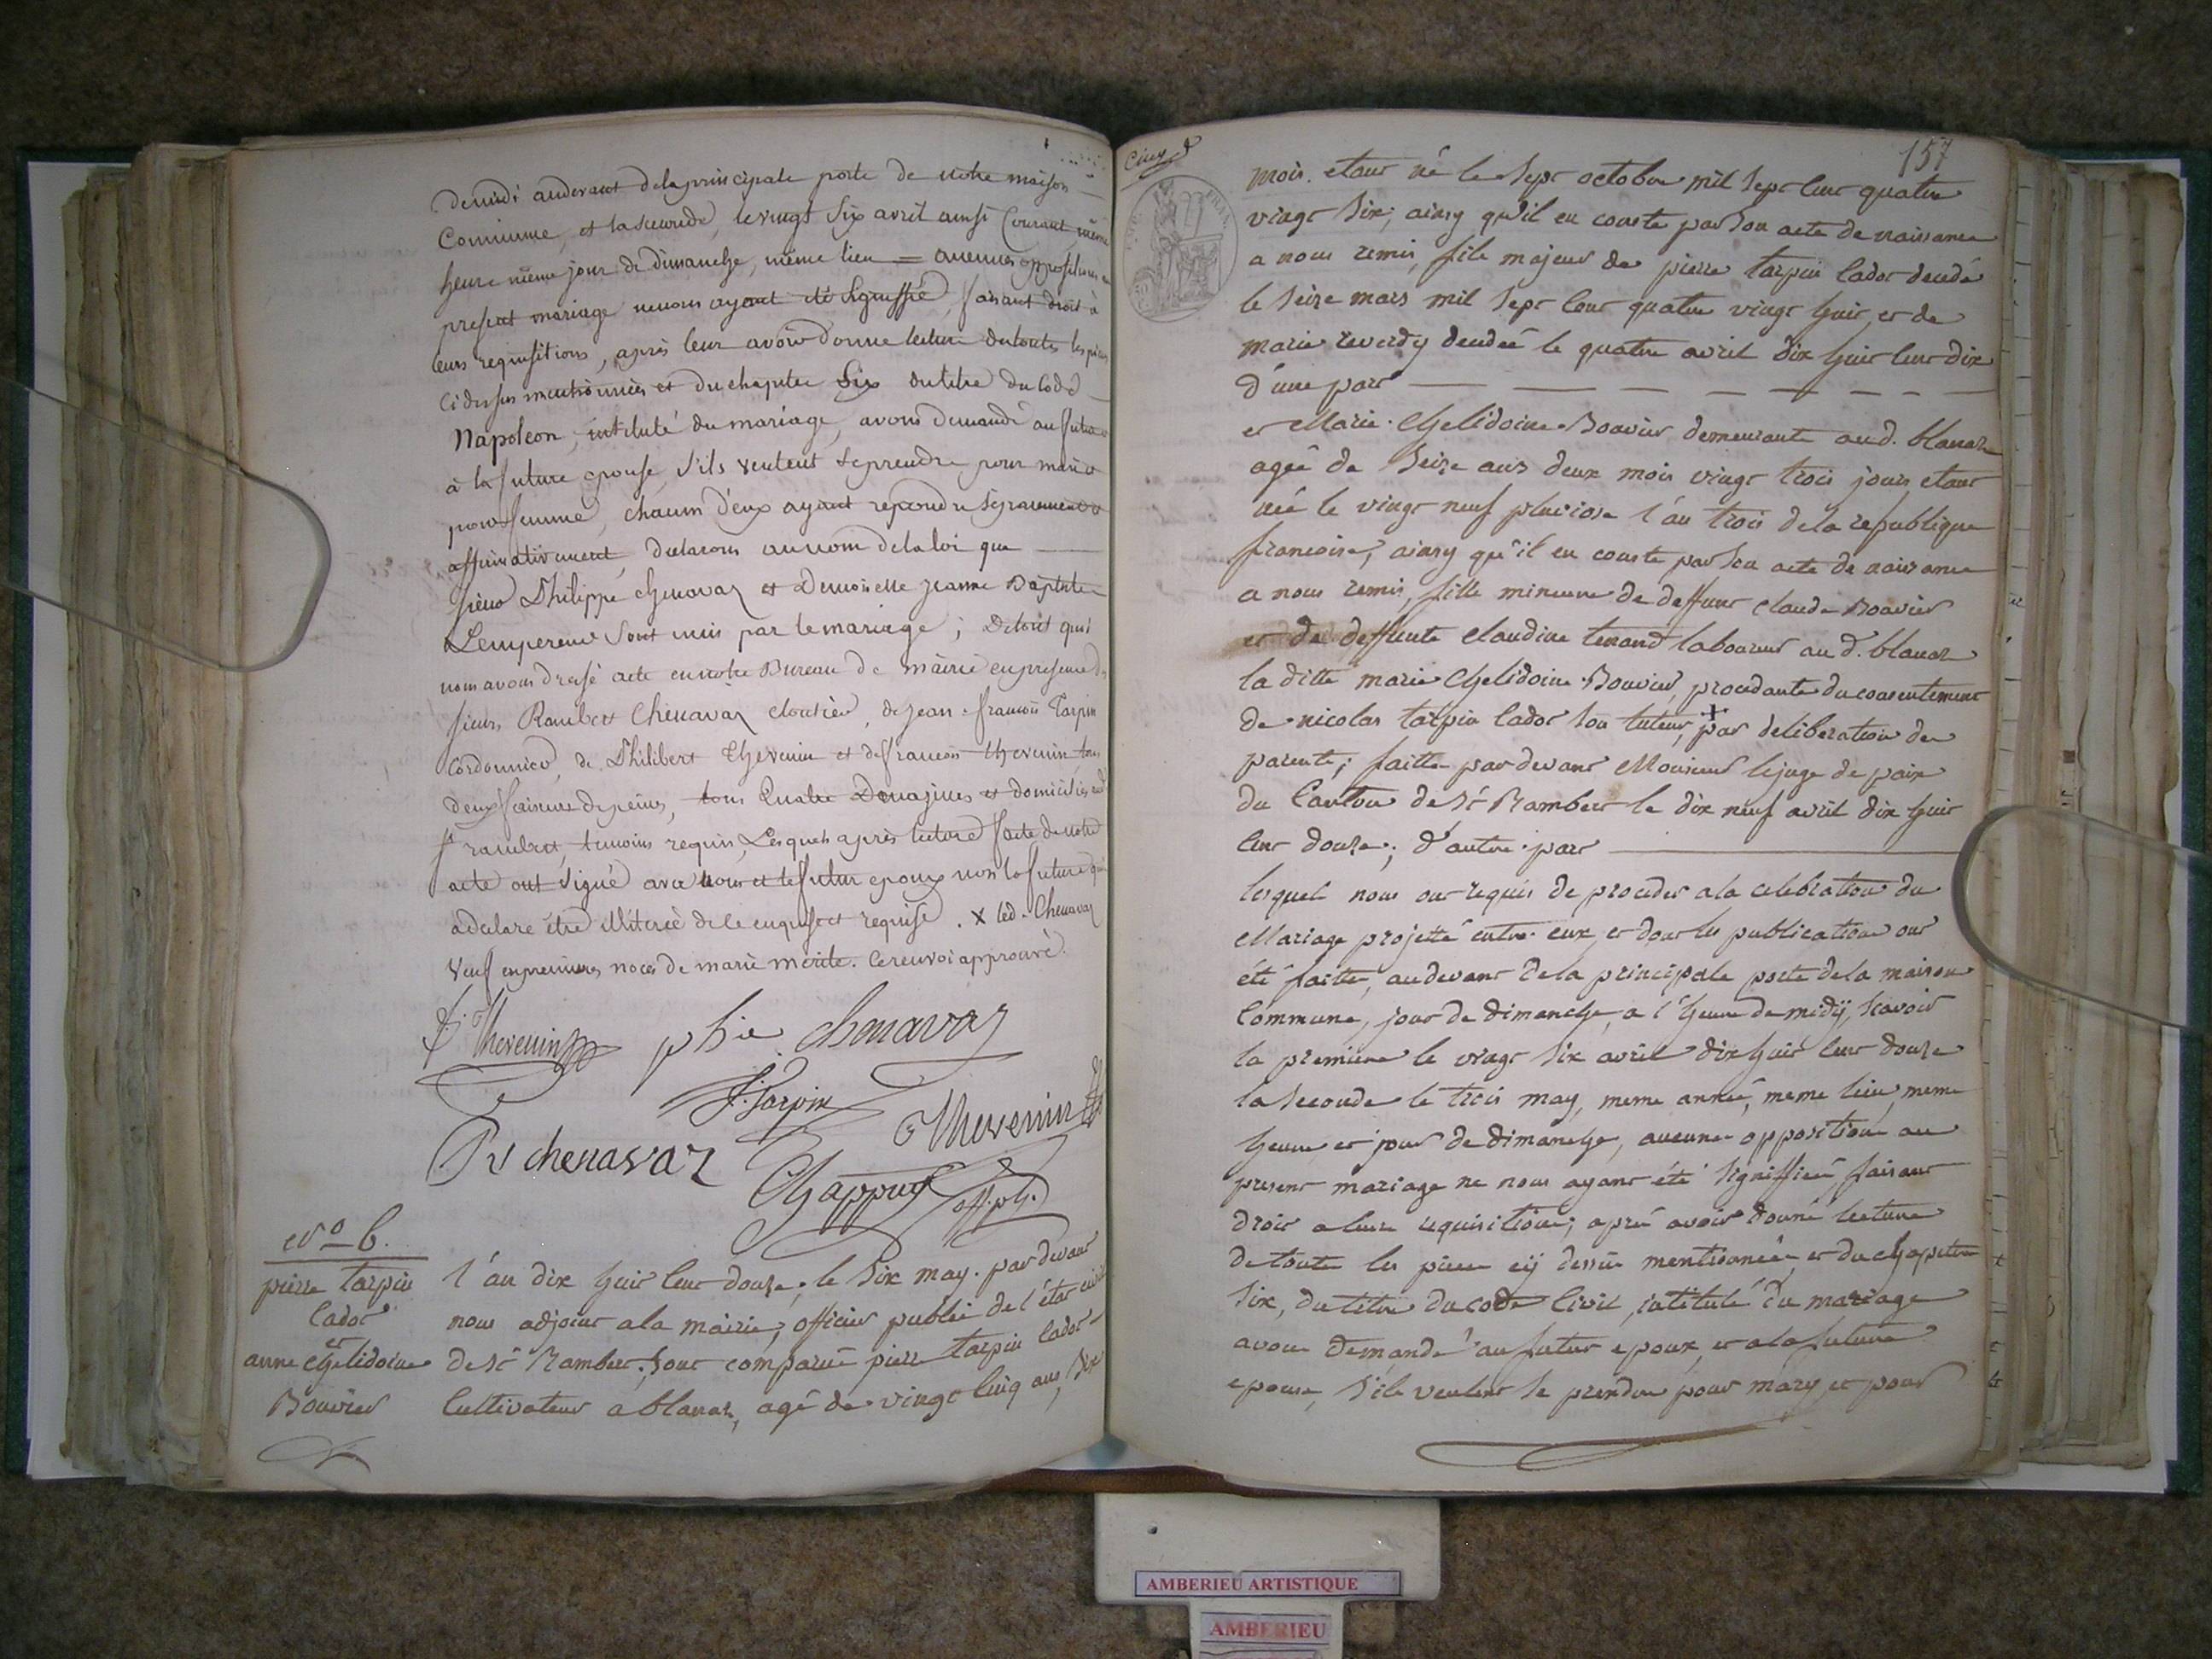 de midi audevant de la principale porte de notre maison
Commune, et la seconde, le vingt six avril aussi Courant même
heure même jour de dimanche, même lieu = aucunes oppositions
present mariage ne nous ayant été signiffié, faisant droit à
leurs requisitions, après leur avoir donné lecture de toutes les pièces
ci dessus mentionnées et du chapitre Six du titre du Code
Napoleon, intitulé du mariage, avons demandé au futur
à la future epouse s'ils veulent se prendre pour mari et
pour femme, chacun d'eux ayant repondu séparement et
affirmativement, declarons au nom de la loi que
sieur Philippe Chenavaz et Demoiselle Jeanne Baptiste
Lempereur sont unis par le mariage ; De tout quoi
nous avons dressé acte en notre Bureau de mairie en presence de
sieurs Rambert Chenavaz cloutier, de jean françois Tarpin
Cordonnier, de Philibert Thevenin et de françois thevenin tous
deux faiseurs de peignes, tous quatre majeurs et domiciliés aud
St rambert, temoins requis, Lesquels après lecture faite de notre
acte ont signé avec nous et le futur epoux non la future qui
a declaré être illiterée de ce enquise et requise . x led. Chenavaz
veuf en premieres noces de marie merite. ce renvoi approuvé.
f. Thevenin phie chenavaz
J. Tarpin Thevenin
Rt chenavaz
Chappuy off. pb.
No 6.
pierre tarpin
Cador
et
anne Chelidoine
Bouvier
l'an dix huit cent douze, le six may. par devant
nous adjoint a la mairie, officier public de l'état civil
de St Rambert. sont comparu pierre tarpin Cador
Cultivateur a blanaz, agé de vingt cinq ans, six
Cinq
157
mois. etant né le sept octobre mil sept cent quatre
vingt six, ainsy qu'il en conste par son acte de naissance
a nous remis, fils majeur de pierre tarpin Cador decedé
le seize mars mil sept cent quatre vingt huit et de
marie reverdy decedée le quatre avril dix huit cent dix
d'une part
et Marie Chelidoine Bouvier demeurante aud. blanaz
agée de seize ans deux mois vingt trois jours etant
née le vingt neuf pluviose l'an trois de la republique
francoise, ainsy qu'il en conste par son acte de naissance
a nous remis, fille mineure de deffunt claude Bouvier
et de deffunte claudine tenand laboureur au d. blanaz
la ditte marie Chelidoine Bouvier, procedante du consentement
de nicolas tarpin Cador son tuteur, + par deliberation de
parents, faitte par devant Monsieur le juge de paix
du Canton de St Rambert le dix neuf avril dix huit
cent douze, d'autre part
lesquels nous ont requis de proceder a la celebration du
Mariage projetté entre eux, et dont les publications ont
été faittes, audevant de la principale porte de la maison
Commune, jour de dimanche, a l'heure de midÿ, scavoir
la premiere le vingt six avril dix huit cent douze
la seconde le trois may, meme année, meme lieu, meme
heure et jour de dimanche, aucune opposition au
present mariage ne nous ayant été signiffiée, faisant
droit a leurs requisitions, apré avoir donné lecture
de toute les piece cÿ dessus mentionnée et du chapitre
six, du titre du code Civil, intitulé du mariage
avons demandé au futur epoux, et a la future
epouse, s'ils veulent se prendre pour mary et pour
AMBERIEU ARTISTIQUE
AMBERIEU